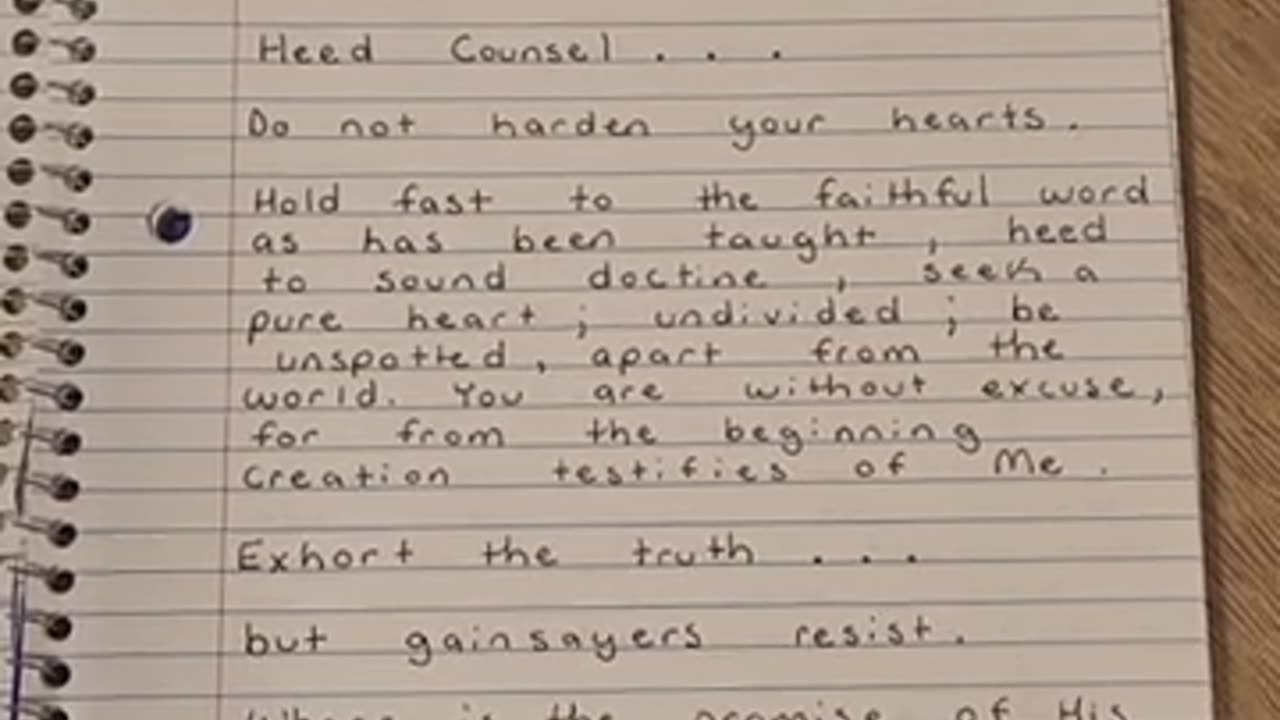 Heed Counsel . . .
Do not harden your hearts.
Hold fast to the faithful word
as has been taught , heed
to sound doctine , seek a
pure heart ; undivided ; be
unspotted , apart from the
world. You are without excuse,
for from the beginning
Creation testifies of Me .
Exhort the truth . . .
but gainsayers resist .
Where is the promise of His